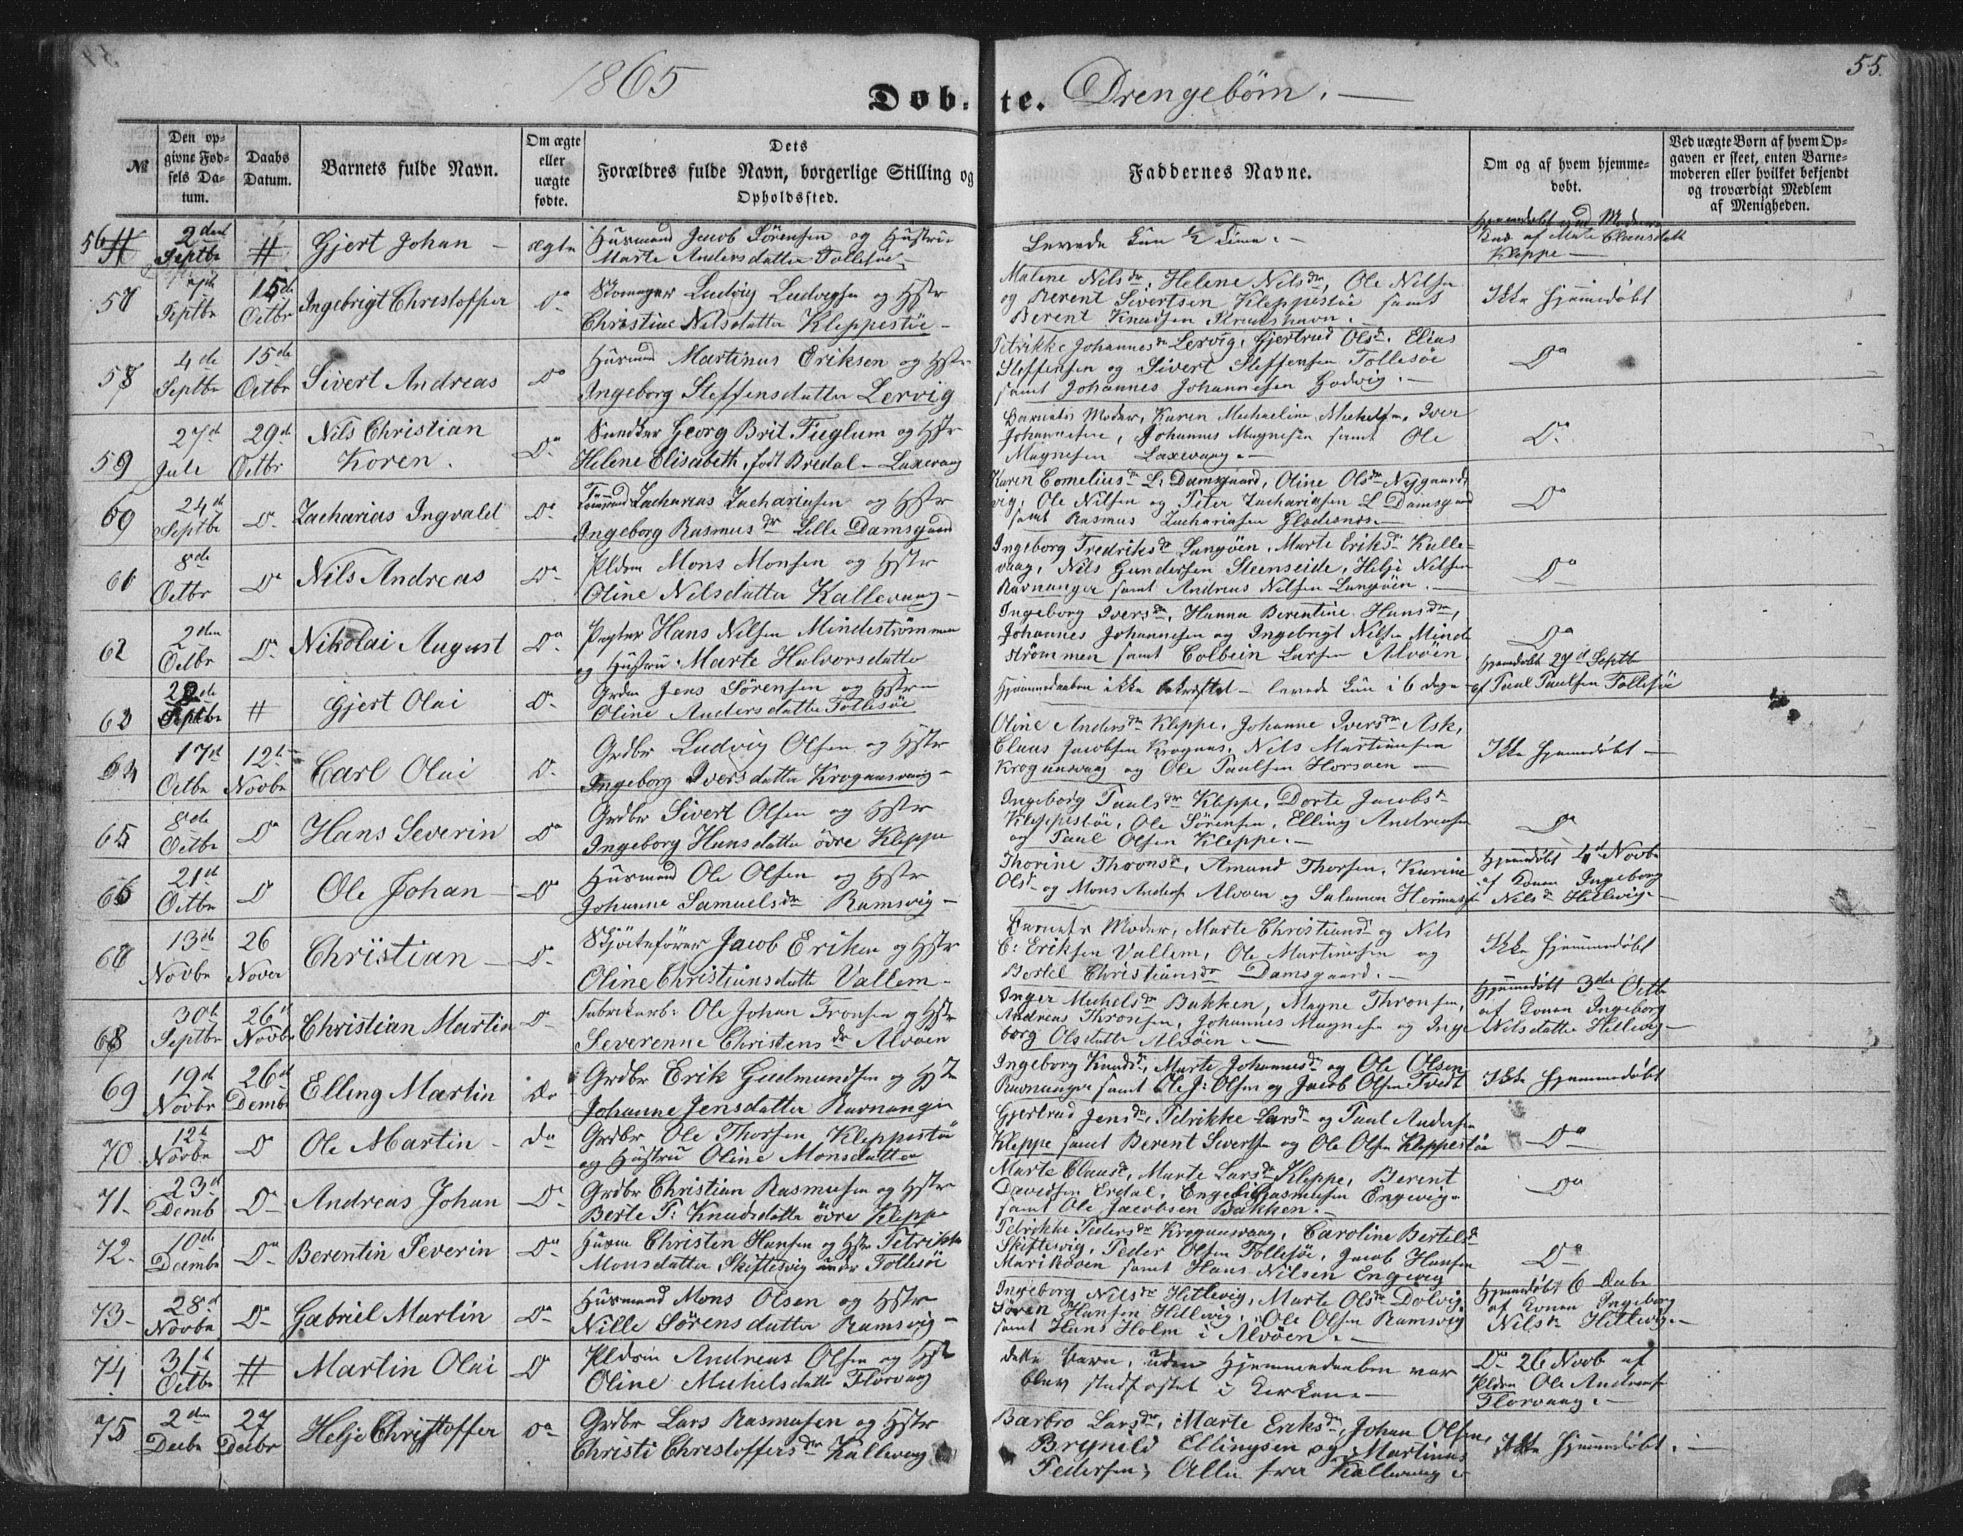 1865
55.
Døb-te. Drengebørn.
№
Den opgivne Fødsels Datum.
Daabs Datum.
Barnets fulde Navn.
Om ægte eller uægte fødte.
Dets
Forældres fulde Navn, borgerlige Stilling og
Opholdssted.
Faddernes Navne.
Om og af hvem hjemmedøbt.
Ved uægte Børn af hvem Opgaven er skeet, enten Barnemoderen eller hvilket bekjendt og troværdigt Medlem af Menigheden.
56 2den Septbr # Gjert Johan ægte Husmand Jacob Sørensen og Hustru
Marte Andersdatter Tollesøe
Levede kun ½ Time.
Kleppe
57 Septbr 15de Octbr Ingebrigt Christoffer Do Ludvig Ludvigsen og Hstr
Christine Nilsdatter Kleppestøe
Malene Nilsdr, Helene Nilsdr, Ole Nilsen
og Berent Sivertsen Kleppestøe samt
Berent Knudsen
Ikke hjemmedøbt
58 4de Septbr 15de Octbr Sivert Andreas Do Husmand Martinus Eriksen og Hstr
Ingeborg Steffensdatter Lervig
Petrikke Johannesdr Lervig, Gjertrud Olsdr, Elias
Steffensen og Sivert Steffensen Tollesøe
samt Johannes Johannesen Godvig.
Do
59 27d Juli 29d Octbr Nils Christian Koren. Do Georg Brit Fuglum og Hstr
Helene Elisabeth, født Bredal - Laxevaag
Barnets Moder, Karen Michaeline Michelsen, Iver
Johannesen, Johannes Magnesen samt Ole
Magnesen Laxevaag.
Do
60 24d Septbr Do Zacharias Ingvald Do Zacharias Zachariasen og Hstr
Ingeborg Rasmusdr Lille Damsgaard
Karen Corneliusdr L. Damsgaard, Oline Olsdr Nygaards-
vig, Ole Nilsen og Peter Zachariasen L Damsgaard
samt Rasmus Zachariasen
Do
61 8de Octbr Do Nils Andreas Do Pldsm Mons Monsen og Hstr
Oline Nilsdatter Kallevaag
Ingeborg Fredriksdr Lungøen, Marte Eriksdr Kalle-
vaag, Nils Gundersen Steenseide, Helje Nilsen
Ravnanger samt Andreas Nilsen Lungøen.
Do
62 2den Octbr Do Nikolai August Do Hans Nilsen Mindestrømmen
og Hustru Marte Halvorsdatter
Ingeborg Iversdr, Hanna Berentine Hansdr,
Johannes Johannesen og Ingebrigt Nilsen Minde
strømmen samt Colbein Larsen Alvøen
Do
63 Septbr # Gjert Olai Do Jens Sørensen og Hstr
Oline Andersdatter Tollesøe
Hjemmedaaben ikke bekræftet - levede kun i 6 Dage
hjemdøbt 29d Septbr
af Paul Paulsen Tollesøe
64 17d Octbr 12te Novbr Carl Olai Do Grdbr Ludvig Olsen og Hstr
Ingeborg Iversdatter Krogaasvaag
Oline Andersdr Kleppe, Johanne Iversdr Ask,
Claus Jacobsen Krogaas, Nils Martinusen
Krogaasvaag og Ole Paulsen Horsøen
Ikke hjemmedøbt
65 8de Octbr Do Hans Severin Do Grdbr Sivert Olsen og Hstr
Ingeborg Hansdatter øvre Kleppe
Ingeborg Paulsdr Kleppe, Dorte Jacobsdr
Kleppestøe, Ole Sørensen, Elling Andreasen
og Paul Olsen Kleppe.
Do
66 21d Octbr Do Ole Johan Do Husmand Ole Olsen og Hstr
Johanne Samuelsdr Ramsvig
Thorine Thronsdr, Amund Thorsen, Karine
Olsdr og Mons Anders Alvøen og Salamon
Hjemdøbt 4d Novbr
af Konen Ingeborg
Nilsdr Hillevig
68 13d Novbr 26 Nover Christian Do Jacob Eriksen og Hstr
Oline Christiansdatter Vallem
Barnets Moder, Marte Christiansdr og Nils
C: Eriksen Vallem, Ole Martinusen og
Bertel Christiansdr Damsgaard.
Ikke hjemmedøbt
68 30te Septbr 26d Novbr Christian Martin Do Fabrikarb: Ole Johan Tronsen og Hstr
Severenne Christensdr Alvøen
Inger Michelsdr Bakken, Magne Thronsen,
Andreas Thronsen, Johannes Magnesen og Inge
borg Olsdatter Alvøen.
Hjemmedøbt 3die Octbr
af Konen Ingeborg
Nilsdatter Hillevig
69 19d Novbr 26d Dembr Elling Martin Do Grdbr Erik Gudmundsen og Hstr
Johanne Jensdatter Ravnanger
Ingeborg Knudsdr, Marte Johannesdr og Ole Olsen
Ravnanger samt Ole J: Olsen og Jacob Olsen Tvedt
Ikke hjemmedøbt
70 12te Novbr Do Ole Martin Do Grdbr Ole Thorsen Kleppestøe
og Hustru Oline Monsdatter
Gjertrud Jensdr, Petrikke Larsdr og Paul Andersen
Kleppe samt Berent Sivertsen og Ole Olsen Kleppestøe
Do
71. 23d Demb Do Andreas Johan Do Grdbr Christian Rasmusen og Hstr
Berte T: Knudsdatter øvre Kleppe
Marte Clausdr, Marte Larsdr Kleppe, Berent
Davidsen Erdal, Rasmusen Engevig
samt Ole Jacobsen Bakken.
Do
72. 10de Dembr Do Berentin Severin Do Husm Christen Hansen og Hstr Petrikke
Monsdatter Skiftesvig under Tollesøe
Petrikke Pedersdr Krogaasvaag, Carolina Bertelsdr
Skiftesvig, Peder Olsen Tollesøe, Jacob Hansen
Marikoven samt Hans Nilsen Engevig
Do
73 28d Novbr Do Gabriel Martin Do Husmand Mons Olsen og Hstr
Nille Sørensdatter Ramsvig
Ingeborg Nilsdr Hillevig, Marte Olsdr Dolvig
Søren Hansen Hillevig, Ole Olsen Ramsvig
samt Hans Holm i Alvøen.
Hjemmedøbt 6 Decbr
af Konen Ingeborg
Nilsdr Hillevig.
74 31te Octbr # Martin Olai Do Pldsm Andreas Olsen og Hstr
Oline Michelsdatter Florvaag
dette Barn, uden Hjemmedaaben var
blev stadfæstet i Kirken.
Do 26 Novb af
Pldsm Ole Andreasen
Florvaag.
75 2den Decbr 27 Decbr Helje Christoffer Do Grdbr Lars Rasmusen og Hstr
Christi Christoffersdr Kallevaag
Barbro Larsdr, Marte Eriksdr, Johan Olsen,
Brynild Ellingsen og Martinus
Pedersen, Alle fra Kallevaag.
Ikke hjemmedøbt.